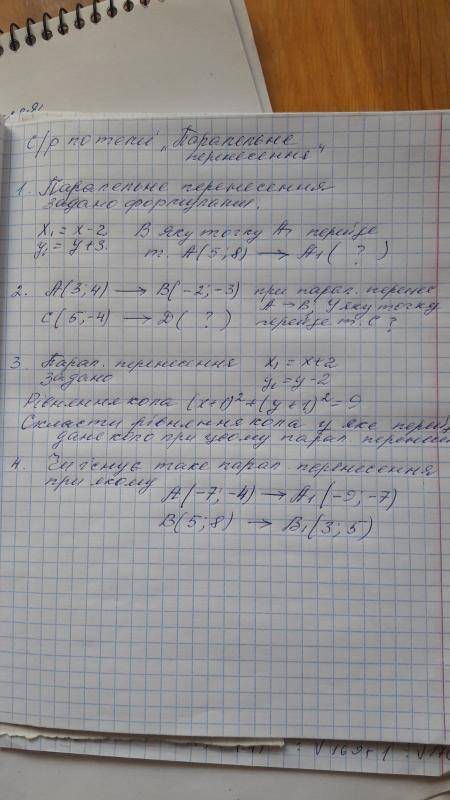 С/р по темі „Паралельне
перенесення"
1. Паралельне перенесення
задано формулами.
x₁ = x - 2 В яку точку A₁ перейде
y₁ = y + 3. т. A(5; 8) → A₁( ? )
2. A(3; 4) → B(-2; -3) при парал. перене
A → B. У яку точку
C(5; -4) → D( ? ) перейде т. C?
3 Парал. перенесення x₁ = x + 2
задано y₁ = y - 2
Рівняння кола (x+1)² + (y+1)² = 9
Скласти рівняння кола у яке перей
дане коло при цьому парал. перенесен
4. Чи існує таке парал. перенесення
при якому A(-7; -4) → A₁(-9; -7)
B(5; 8) → B₁(3; 5)